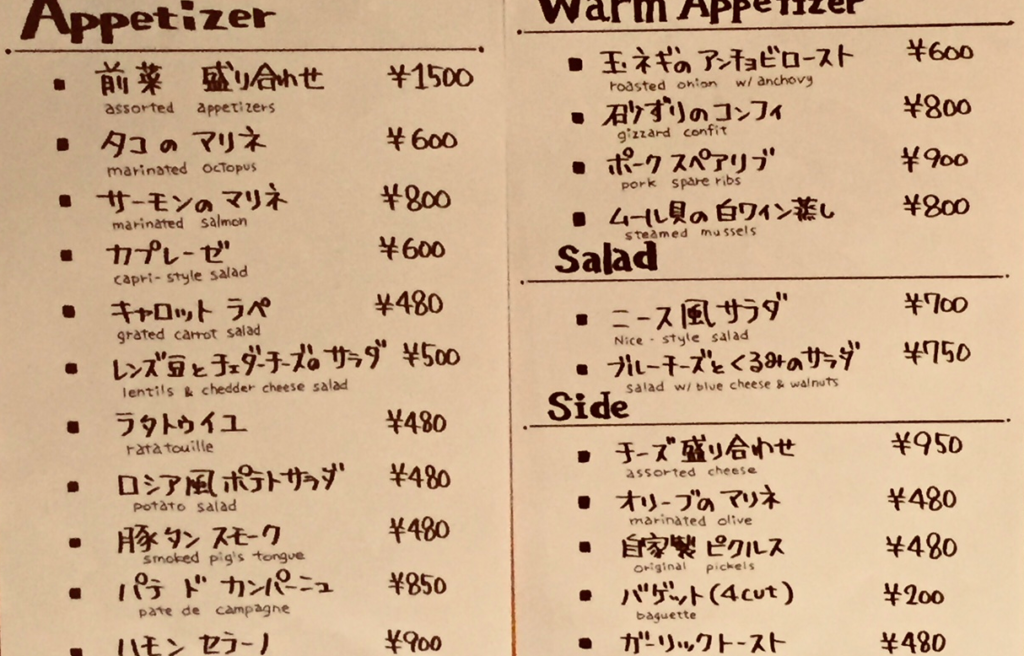 Appetizer
■ 前菜 盛り合わせ ¥1500
assorted appetizers
■ タコのマリネ ¥600
marinated octopus
■ サーモンのマリネ ¥800
marinated salmon
■ カプレーゼ ¥600
capri-style salad
■ キャロット ラペ ¥480
grated carrot salad
■ レンズ豆とチェダーチーズのサラダ ¥500
lentils & chedder cheese salad
■ ラタトゥイユ ¥480
ratatouille
■ ロシア風ポテトサラダ ¥480
potato salad
■ 豚タン スモーク ¥480
smoked pig's tongue
■ パテ ド カンパーニュ ¥850
pate de campagne
■ ハモン セラーノ ¥900
Warm Appetizer
■ 玉ネギのアンチョビロースト ¥600
roasted onion w/anchovy
■ 砂ずりのコンフィ ¥800
gizzard confit
■ ポークスペアリブ ¥900
pork spare ribs
■ ムール貝の白ワイン蒸し ¥800
steamed mussels
Salad
■ ニース風サラダ ¥700
Nice-style salad
■ ブルーチーズとくるみのサラダ ¥750
salad w/blue cheese & walnuts
Side
■ チーズ盛り合わせ ¥950
assorted cheese
■ オリーブのマリネ ¥480
marinated olive
■ 自家製ピクルス ¥480
original pickels
■ バゲット(4cut) ¥200
baguette
■ ガーリックトースト ¥480